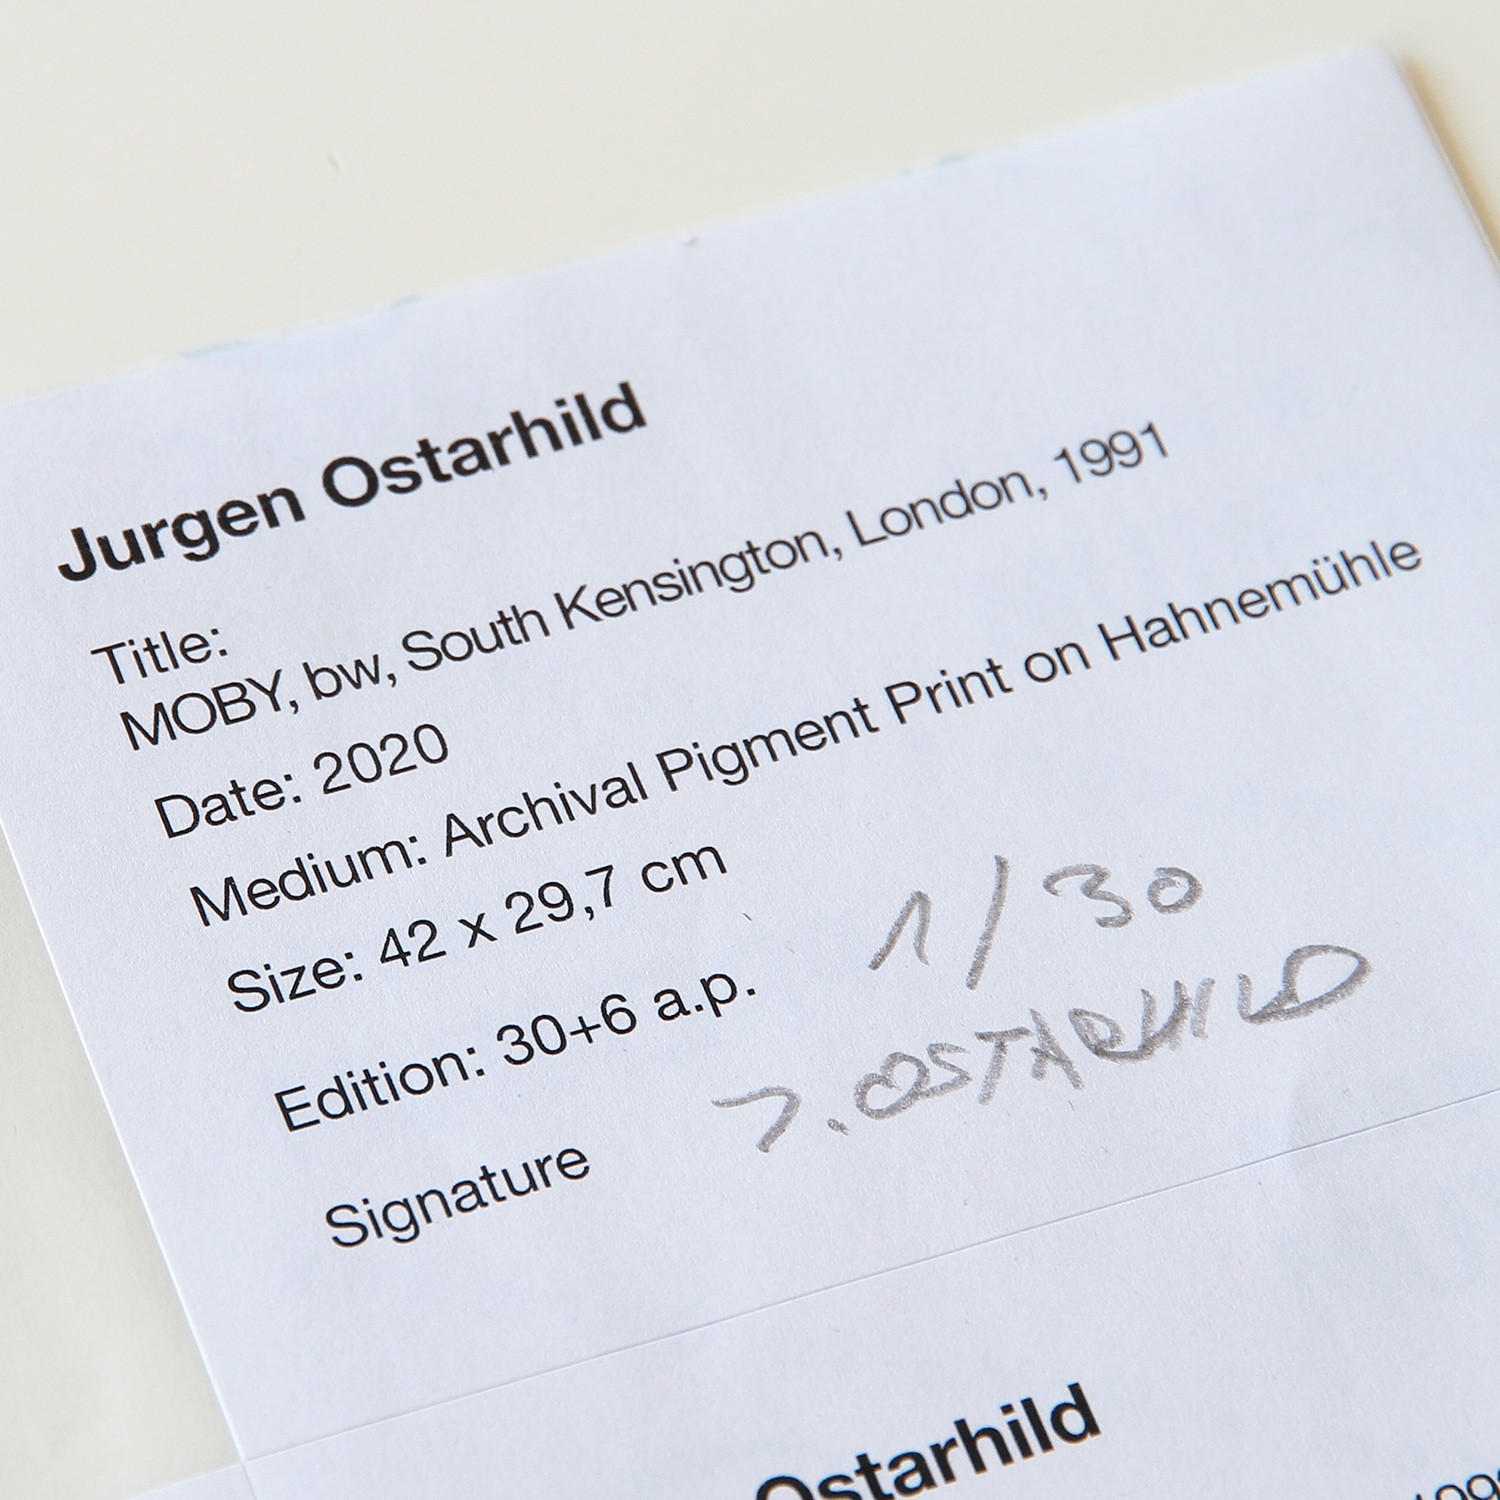 Jurgen Ostarhild
Title:
MOBY, bw, South Kensington, London, 1991
Date: 2020
Medium: Archival Pigment Print on Hahnemühle
Size: 42 x 29,7 cm
Edition: 30+6 a.p. 1/30
Signature J. OSTARHILD
Ostarhild